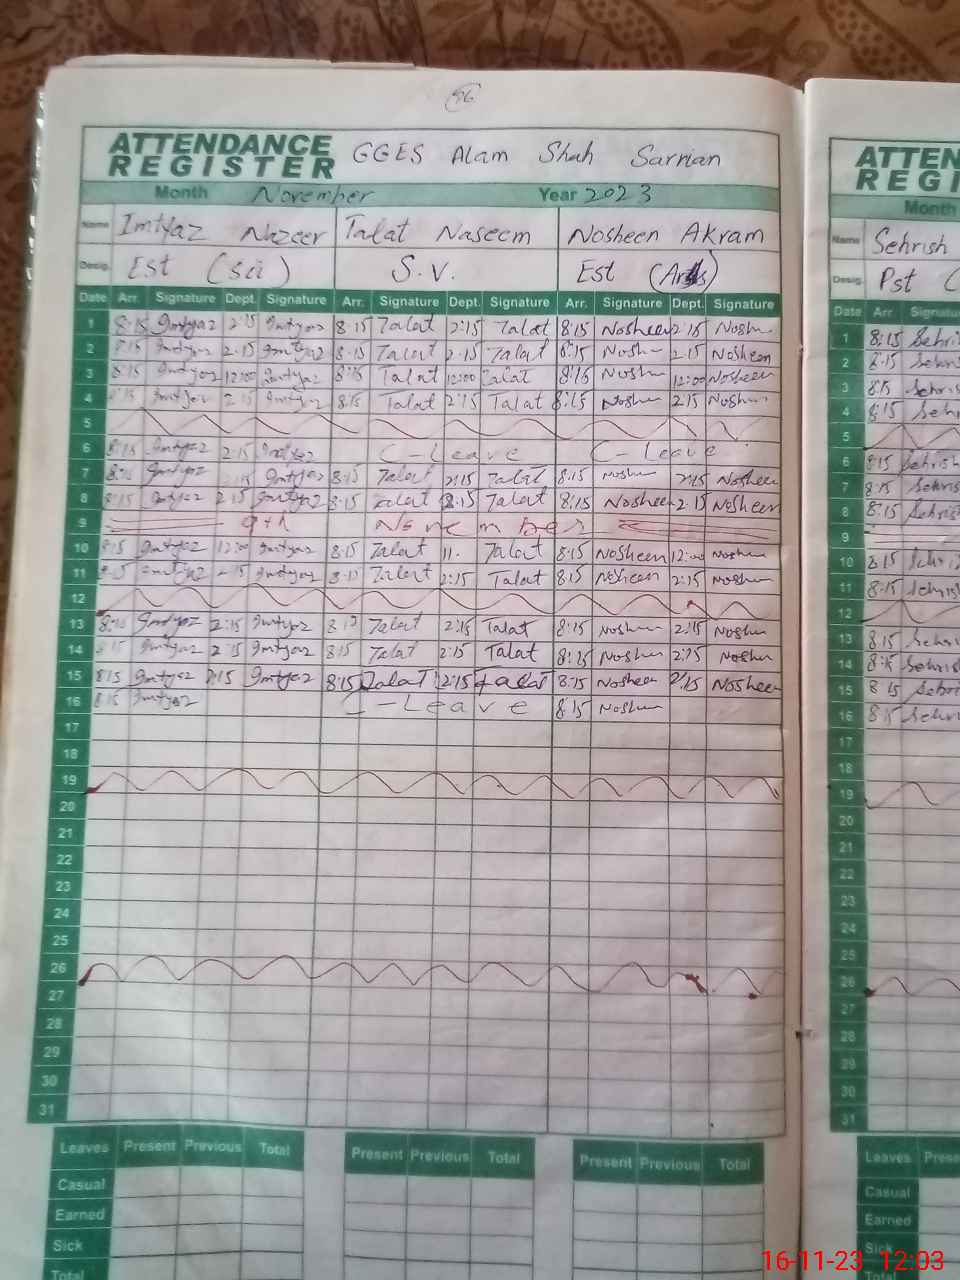 96
ATTENDANCE REGISTER GGES Alam Shah Sarrian
Month November Year 2023
Name Imtyaz Nazeer Talat Naseem Nosheen Akram
Desig. Est (Sci) S.V. Est (Arts)
Date Arr. Signature Dept. Signature Arr. Signature Dept. Signature Arr. Signature Dept. Signature
1 8:15 Imtyaz 2:15 Imtyaz 8:15 Talat 2:15 Talat 8:15 Nosheen 2:15
2 8:15 Imtyaz 2:15 Imtyaz 8:15 Talat 2:15 Talat 8:15 2:15 Nosheen
3 8:15 Imtyaz 12:00 Imtyaz 8:15 Talat 12:00 Talat 8:15 12:00 Nosheen
4 8:15 Imtyaz 2:15 Imtyaz 8:15 Talat 2:15 Talat 8:15 2:15
5
6 8:15 Imtyaz 2:15 Imtyaz C-Leave C-Leave
7 8:15 Imtyaz 2:15 Imtyaz 8:15 Talat 2:15 Talat 8:15 2:15 Nosheen
8 8:15 Imtyaz 2:15 Imtyaz 8:15 Talat 2:15 Talat 8:15 Nosheen 2:15 Nosheen
9 9th November
10 8:15 Imtyaz 12:00 Imtyaz 8:15 Talat 11. Talat 8:15 Nosheen 12:00
11 8:15 Imtyaz 2:15 Imtyaz 8:15 Talat 2:15 Talat 8:15 Nosheen 2:15
12
13 8:15 Imtyaz 2:15 Imtyaz 8:15 Talat 2:15 Talat 8:15 2:15
14 8:15 Imtyaz 2:15 Imtyaz 8:15 Talat 2:15 Talat 8:15 2:15
15 8:15 Imtyaz 2:15 Imtyaz 8:15 Talat 2:15 Talat 8:15 Nosheen 2:15 Nosheen
16 8:15 Imtyaz C-Leave 8:15
17
18
19
20
21
22
23
24
25
26
27
28
29
30
31
Leaves Present Previous Total Present Previous Total Present Previous Total
Casual
Earned
Sick
Total
ATTEN
REGI
Month
Name Sehrish
Desig. Pst (
Date Arr Signatu
1 8:15 Sehri
2 8:15
3 8:15
4 8:15 Sehr
5
6 8:15 Sehrish
7 8:15
8 8:15
9
10 8:15
11 8:15
12
13 8:15
14 8:15
15 8:15
16 8:15 Sehri
17
18
19
20
21
22
23
24
25
26
27
28
29
30
31
Leaves Prese
Casual
Earned
Sick
Total
16-11-23 12:03